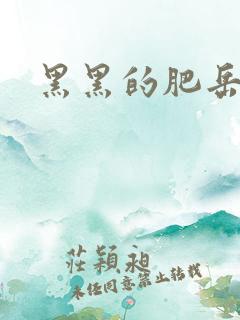 黑黑的肥岳
莊穎昶
未经同意禁止转载